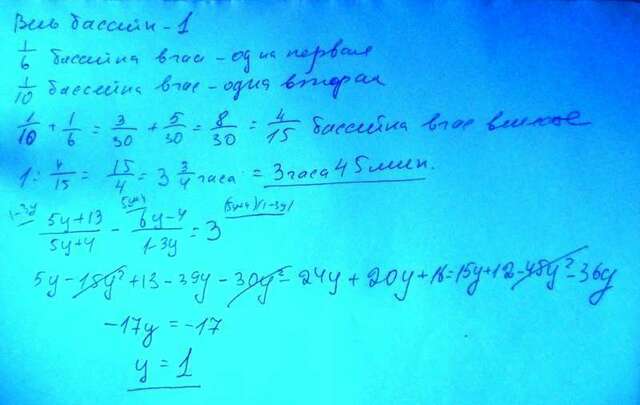 Весь бассейн - 1
1/6 бассейна в час - одна первая
1/10 бассейна в час - одна вторая
1/10 + 1/6 = 3/30 + 5/30 = 8/30 = 4/15 бассейна в час вместе
1 : 4/15 = 15/4 = 3 3/4 часа = 3 часа 45 мин.
1-3y (5y+13)/(5y+4) - 5y+4 (6y-4)/(1-3y) = 3 (5y+4)(1-3y)
5y - 15y² + 13 - 39y - 30y² - 24y + 20y + 16 = 15y + 12 - 45y² - 36y
-17y = -17
y = 1